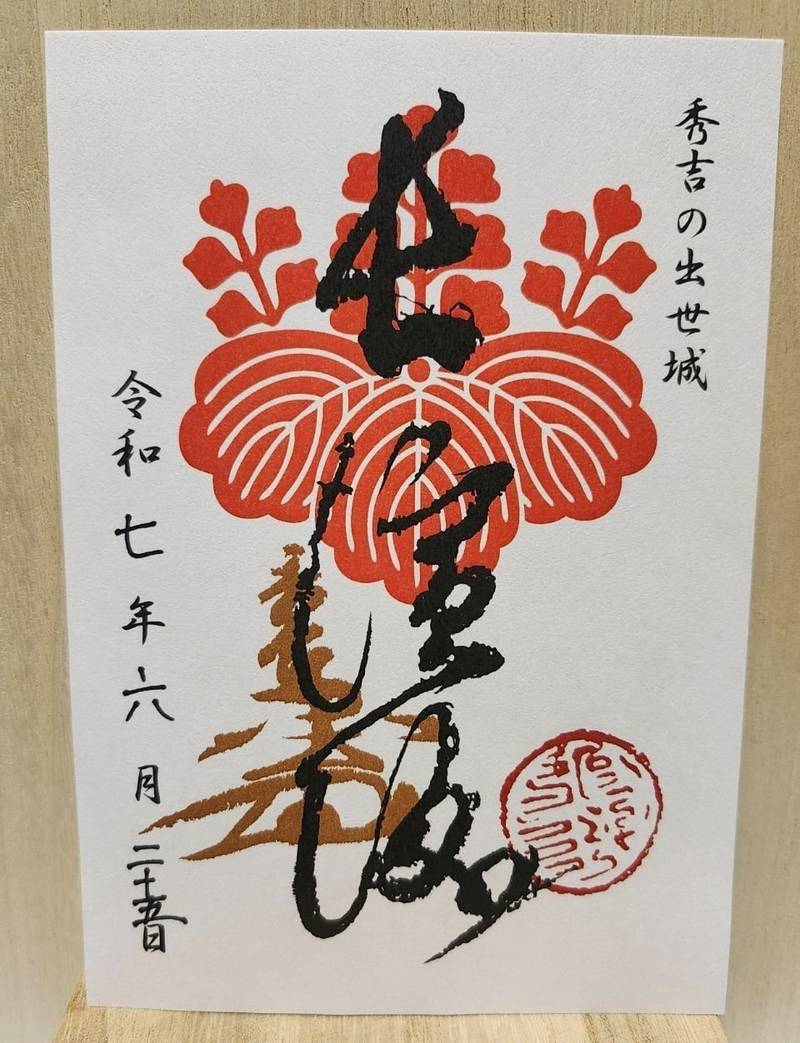 秀吉の出世城
長濱城
令和七年六月二十五日